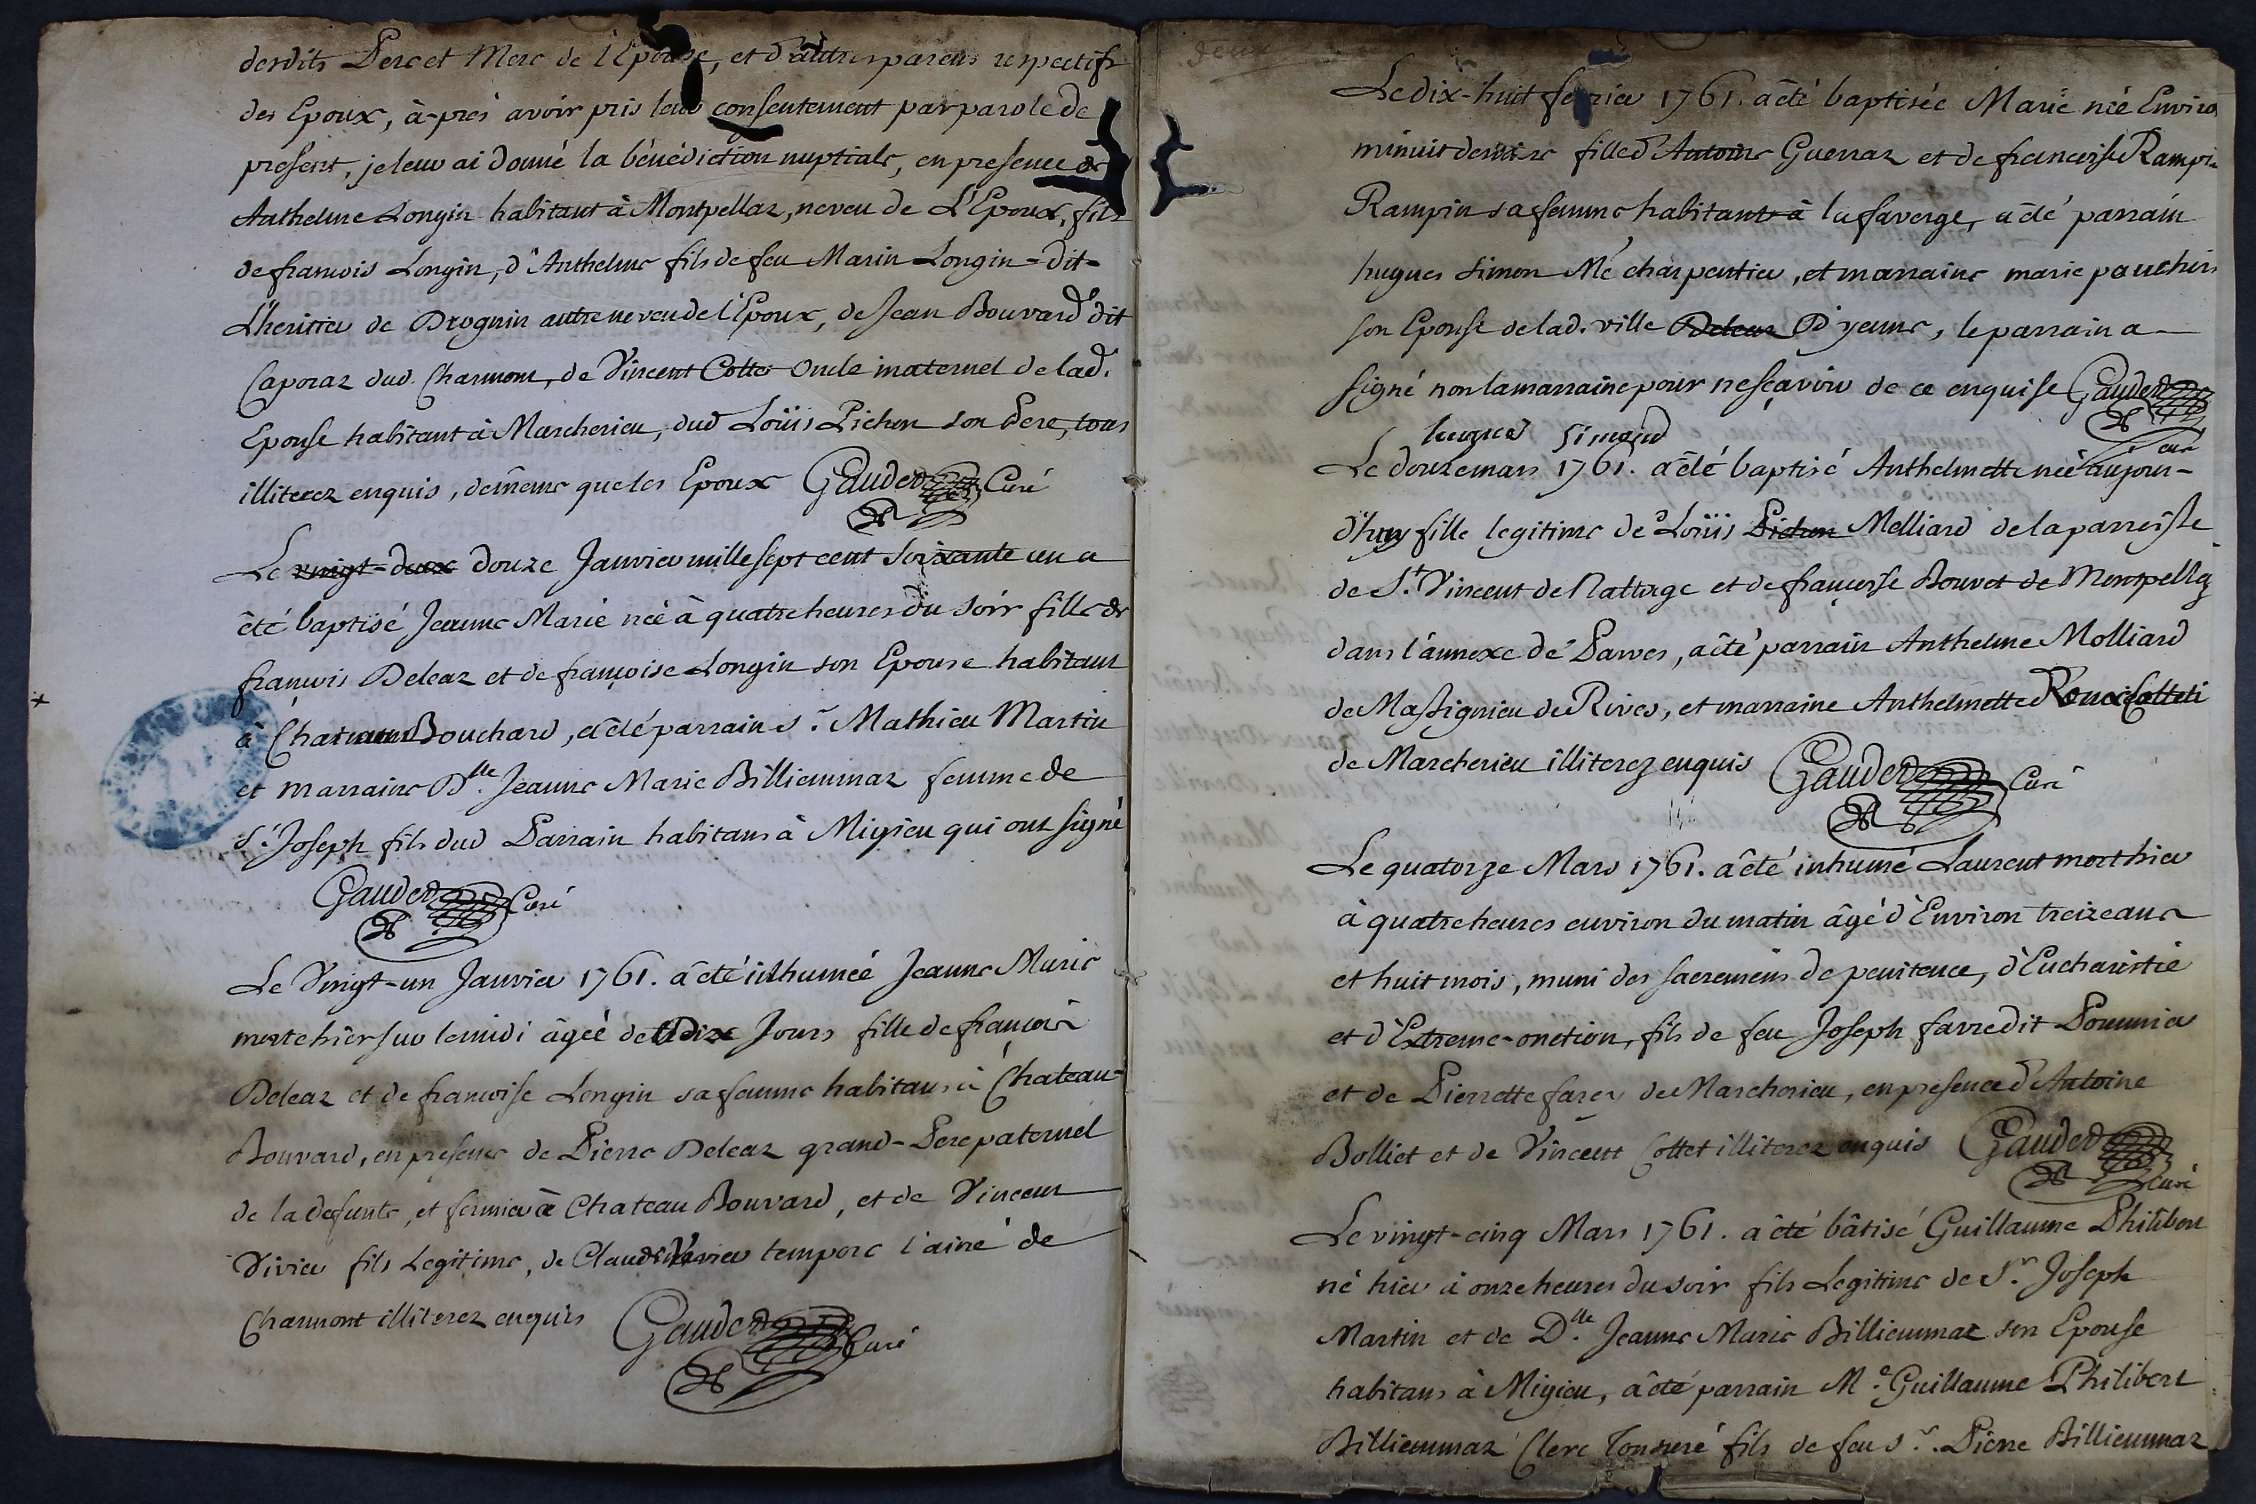 desdits Pere et Mere de l'Epouse, et d'autres parens respectifs
des Epoux, à-prés avoir pris leur consentement par parole de
present, je leur ai donné la bénédiction nuptiale, en presence de
Anthelme Longin habitant à Montpellaz, neveu de L'Epoux, fils
de francois Longin, d'Anthelme fils de feu Marin Longin-dit-
L'heritier de Drognin autre neveu de l'Epoux, de Jean Bouvard dit
Caporaz dud. Charmont, de Vincent Collet Oncle maternel de lad.
Epouse habitant à Marcherieu, dud Loüis Pichon son Pere, tous
illiterez enquis, de même que les Epoux Gauder Curé
Le vingt-deux douze Janvier mille sept cent soixante un a
êté baptisé Jeanne Marie née à quatre heures du soir fille de
françois Deleaz et de françoise Longin son Epouse habitant
à Chateau Bouchard, a êté parrain s.r Mathieu Martin
et marraine D.lle Jeanne Marie Billiemmaz femme de
S.r Joseph fils dud Parrain habitans à Migieu qui ont signé
Gauder Curé
Le Vingt-un Janvier 1761. a êté inhumée Jeanne Marie
morte hier sur le midi âgée de dix Jours fille de francois
Deleaz et de francoise Longin sa femme habitans à Chateau-
Bouvard, en presence de Pierre Deleaz grand-Pere paternel
de la defunte, et fermier à Chateau Bouvard, et de Vincent
Vivier fils Legitime, de Claude Vivier tempore l'ainé de
Charmont illiterez enquis Gauder Curé
Le dix-huit fevrier 1761. a êté baptisée Marie née Enviro
minuit derniere fille d'Antoine Guerraz et de francoise Rampin
Rampin sa femme habitants à la faverge, a êté parrain
hugues Simon Me charpentier, et marraine marie pauchin
son Epouse de lad. ville Deleaz D'yenne, le parrain a
signé non la marraine pour ne sçavoir de ce enquise Gauder
Cur
hugues simond
Le douze mars 1761. a êté baptisé Anthelmette née aujour-
d'huy fille legitime de Loüis Pichon Melliard de la parroisse
de S.t Vincent de Nattage et de françoise Bouvet de Montpellaz
dans l'annexe de Parves, a êté parrain Anthelme Molliard
de Massignieu de Rives, et marraine Anthelmette Roux Colleti
de Marcherieu illiterez enquis Gauder Curé
Le quatorze Mars 1761. a êté inhumé Laurent mort hier
à quatre heures environ du matin âgé d'Environ treize ans
et huit mois, muni des sacremens de penitence, d'Eucharistie
et d'Extreme-onction, fils de feu Joseph favre dit Pommier
et de Pierrette favre de Marcherieu, en presence d'Antoine
Bolliet et de Vincent Collet illiterez enquis Gauder
Curé
Le vingt-cinq Mars 1761. a êté bâtisé Guillaume Philibert
né hier à onze heures du soir fils Legitime de S.r Joseph
Martin et de D.lle Jeanne Marie Billiemmaz son Epouse
habitans à Migieu, a êté parrain M.e Guillaume Philibert
Billiemmaz Clerc Tonsuré fils de feu s.r Pierre Billiemmaz